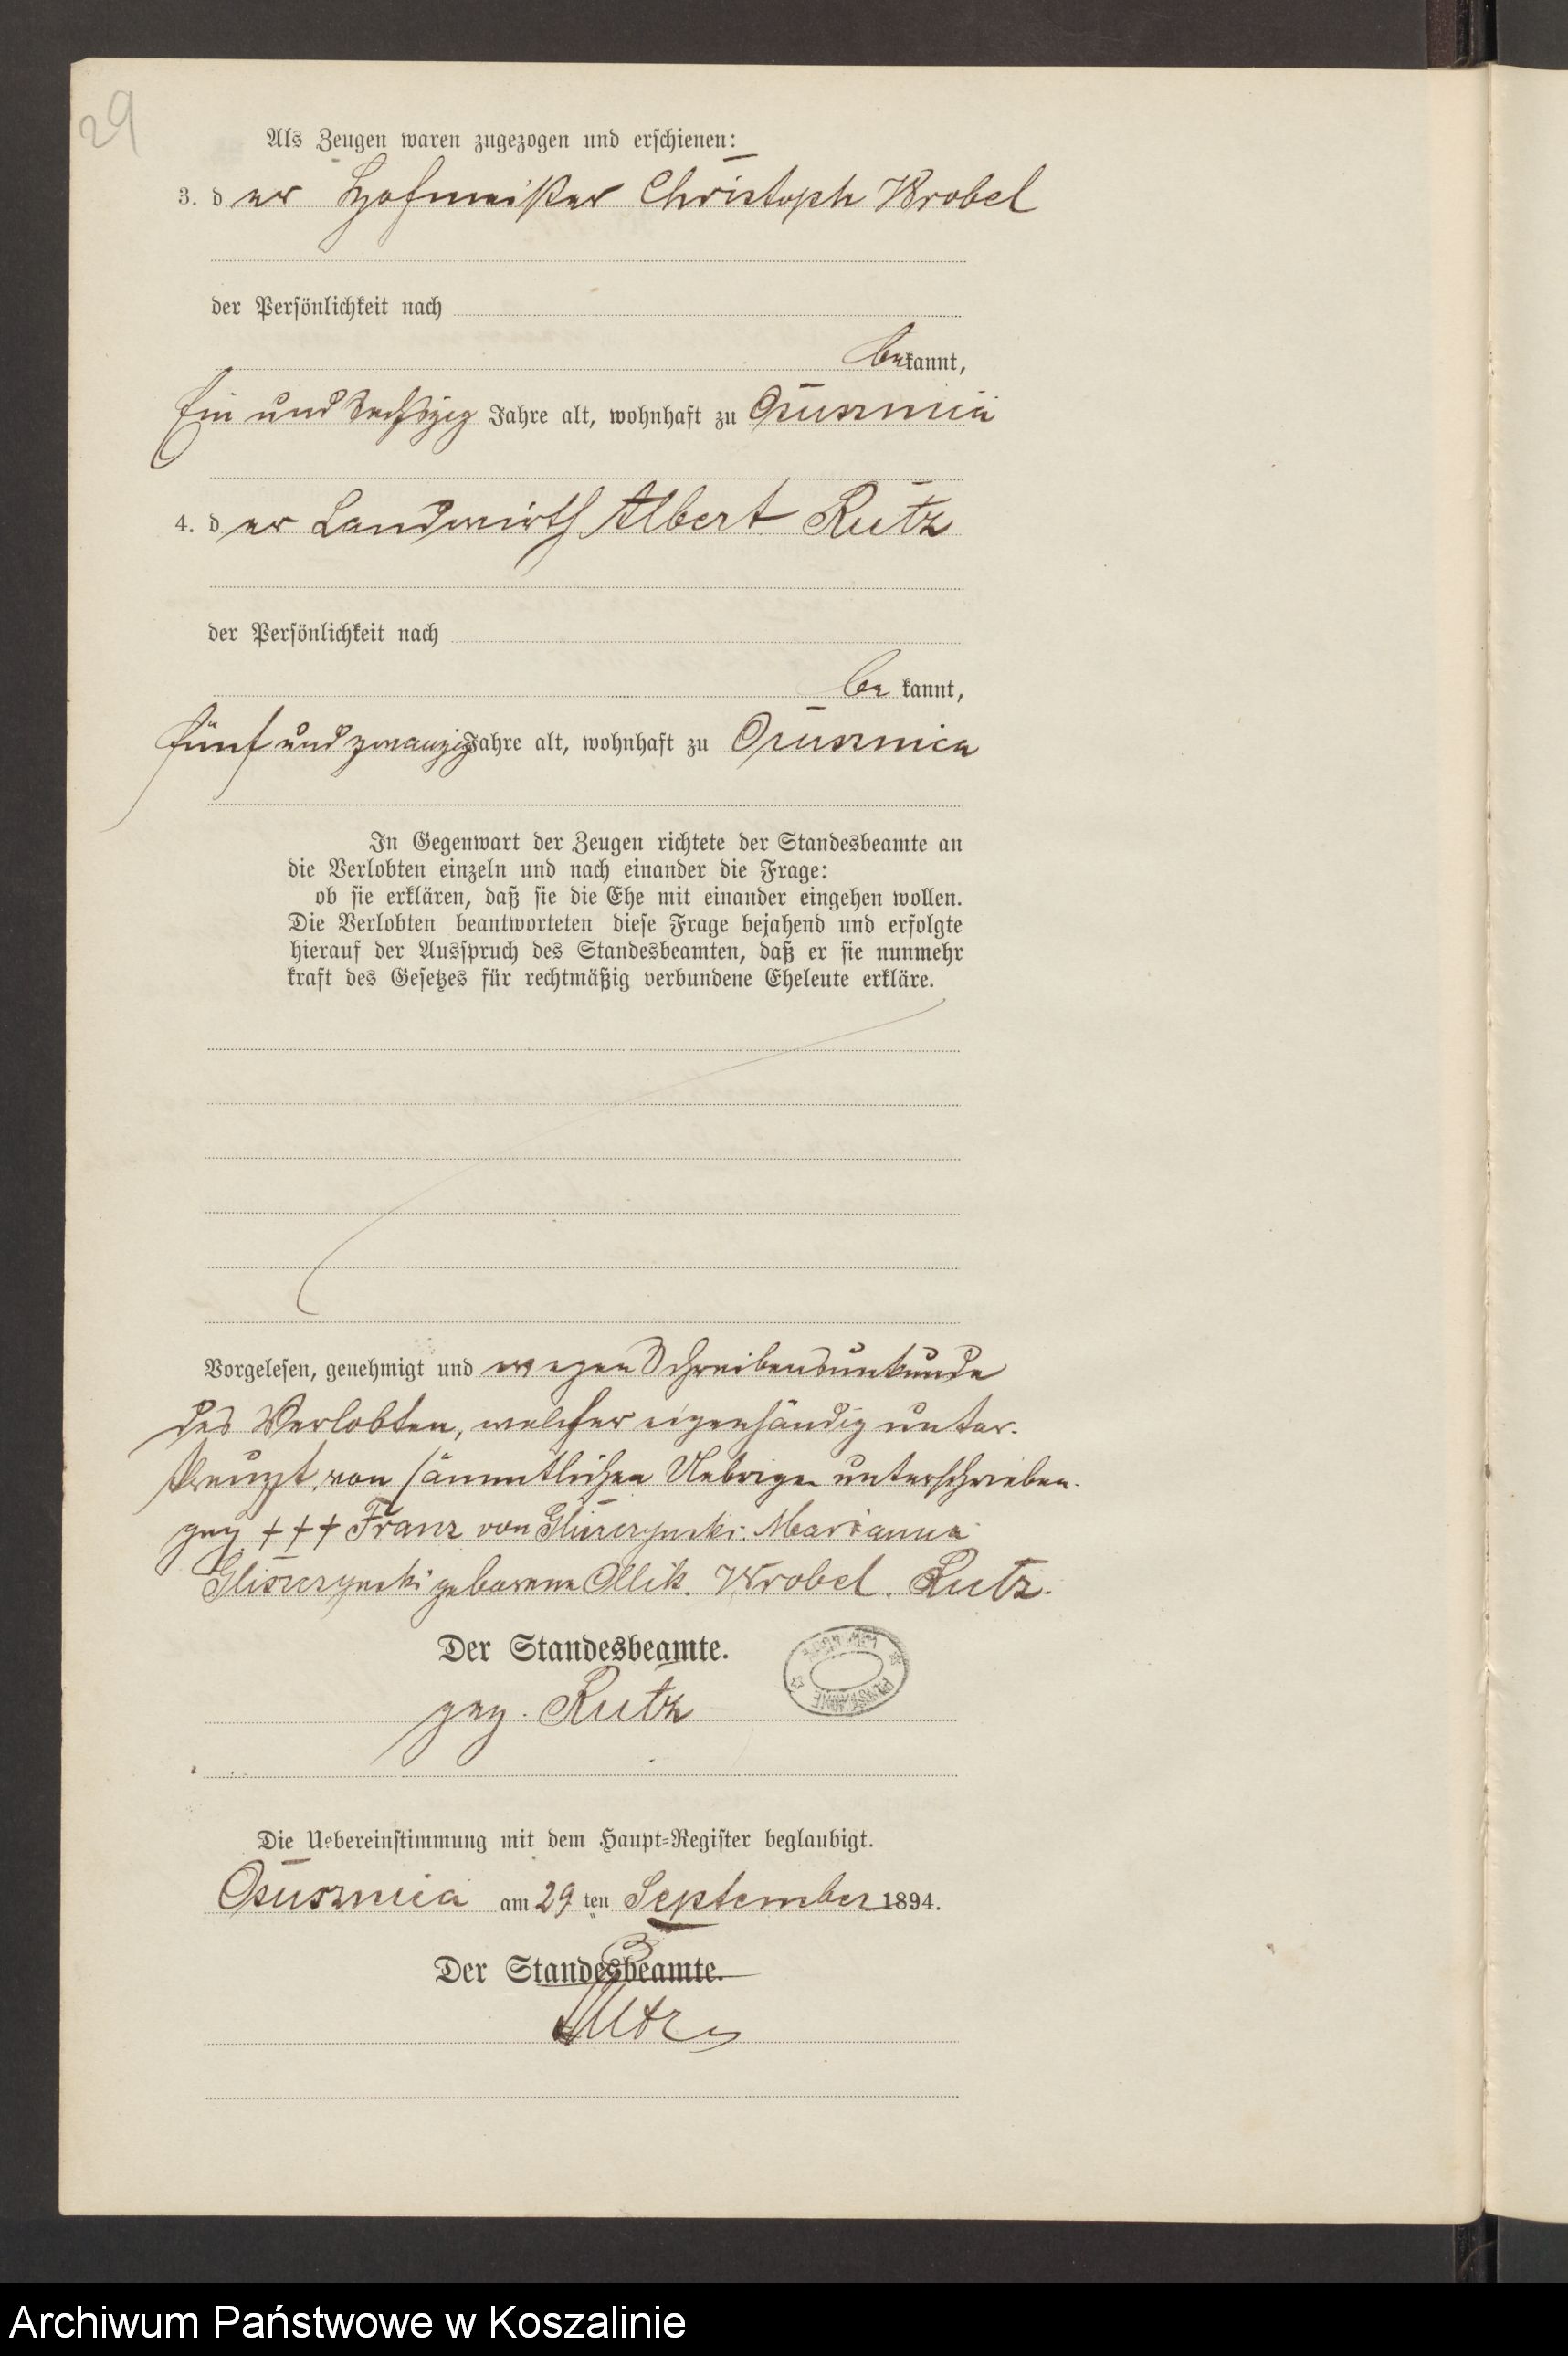 29
Als Zeugen waren zugezogen und erschienen:
3. der Hofmeister Christoph Wrobel
der Persönlichkeit nach
bekannt,
Ein und Sechszig Jahre alt, wohnhaft zu Osusznica
4. der Landwirth Albert Rutz
der Persönlichkeit nach
be kannt,
fünf und zwanzig Jahre alt, wohnhaft zu Osusznica
In Gegenwart der Zeugen richtete der Standesbeamte an
die Verlobten einzeln und nach einander die Frage:
ob sie erklären, daß sie die Ehe mit einander eingehen wollen.
Die Verlobten beantworteten diese Frage bejahend und erfolgte
hierauf der Ausspruch des Standesbeamten, daß er sie nunmehr
kraft des Gesetzes für rechtmäßig verbundene Eheleute erkläre.
Vorgelesen, genehmigt und wegen Schreibensunkunde
des Verlobten, welcher eigenhändig unter-
kreuzt, von sämmtlichen Uebrigen unterschrieben.
gez. +++ Franz von Gliszczynski. Marianna
Gliszczynski geborene Ollik. Wrobel. Rutz.
Der Standesbeamte.
gez. Rutz
Die Uebereinstimmung mit dem Haupt-Register beglaubigt.
Osusznica am 29 ten September 1894.
Der Standesbeamte.
Rutz
Archiwum Państwowe w Koszalinie